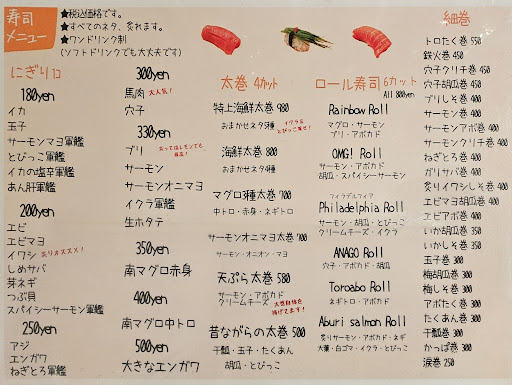 寿司
メニュー
★税込価格です。
★すべてのネタ、炙れます。
★ワンドリンク制
(ソフトドリンクでも大丈夫です)
にぎり1コ
180yen
イカ
玉子
サーモンマヨ軍艦
とびっこ軍艦
イカの塩辛軍艦
あん肝軍艦
200yen
エビ
エビマヨ
イワシ 炙りオススメ!
しめサバ
芽ネギ
つぶ貝
スパイシーサーモン軍艦
250yen
アジ
エンガワ
ねぎとろ軍艦
300yen
馬肉 大人気!
穴子
330yen
ブリ
サーモン
サーモンオニマヨ
イクラ軍艦
生ホタテ
350yen
南マグロ赤身
400yen
南マグロ中トロ
500yen
大きなエンガワ
太巻 4カット
特上海鮮太巻 980
おまかせネタ種
イクラ&とびっこ乗せ!
海鮮太巻 800
おまかせネタ種
マグロ3種太巻 700
中トロ・赤身・ネギトロ
サーモンオニマヨ太巻 700
サーモン・オニオン・マヨ
天ぷら太巻 580
サーモン・アボカド
クリームチーズ
昔ながらの太巻 500
干瓢・玉子・たくあん
胡瓜・とびっこ
ロール寿司 6カット
All 800yen
Rainbow Roll
マグロ・サーモン
ブリ・アボカド
OMG! Roll
サーモン・アボカド
胡瓜・スパイシーサーモン
フィラデルフィア
Philadelphia Roll
サーモン・胡瓜・とびっこ
クリームチーズ・イクラ
ANAGO Roll
穴子・アボカド・胡瓜
Toroabo Roll
ネギトロ・アボカド
Aburi salmon Roll
炙りサーモン・アボカド・ネギ
大葉・白ゴマ・イクラ・とびっこ
細巻
トロたく巻 550
鉄火巻 450
穴子クリチ巻 450
穴子胡瓜巻 450
ブリしそ巻 400
サーモン巻 400
サーモンアボ巻 400
サーモンクリチ巻 400
ねぎとろ巻 400
ガリサバ巻 400
炙りイワシしそ巻 400
エビマヨ胡瓜巻 400
エビアボ巻 400
いか胡瓜巻 350
いかしそ巻 350
玉子巻 300
梅胡瓜巻 300
梅しそ巻 300
アボたく巻 300
たくあん巻 300
干瓢巻 300
かっぱ巻 300
涙巻 250